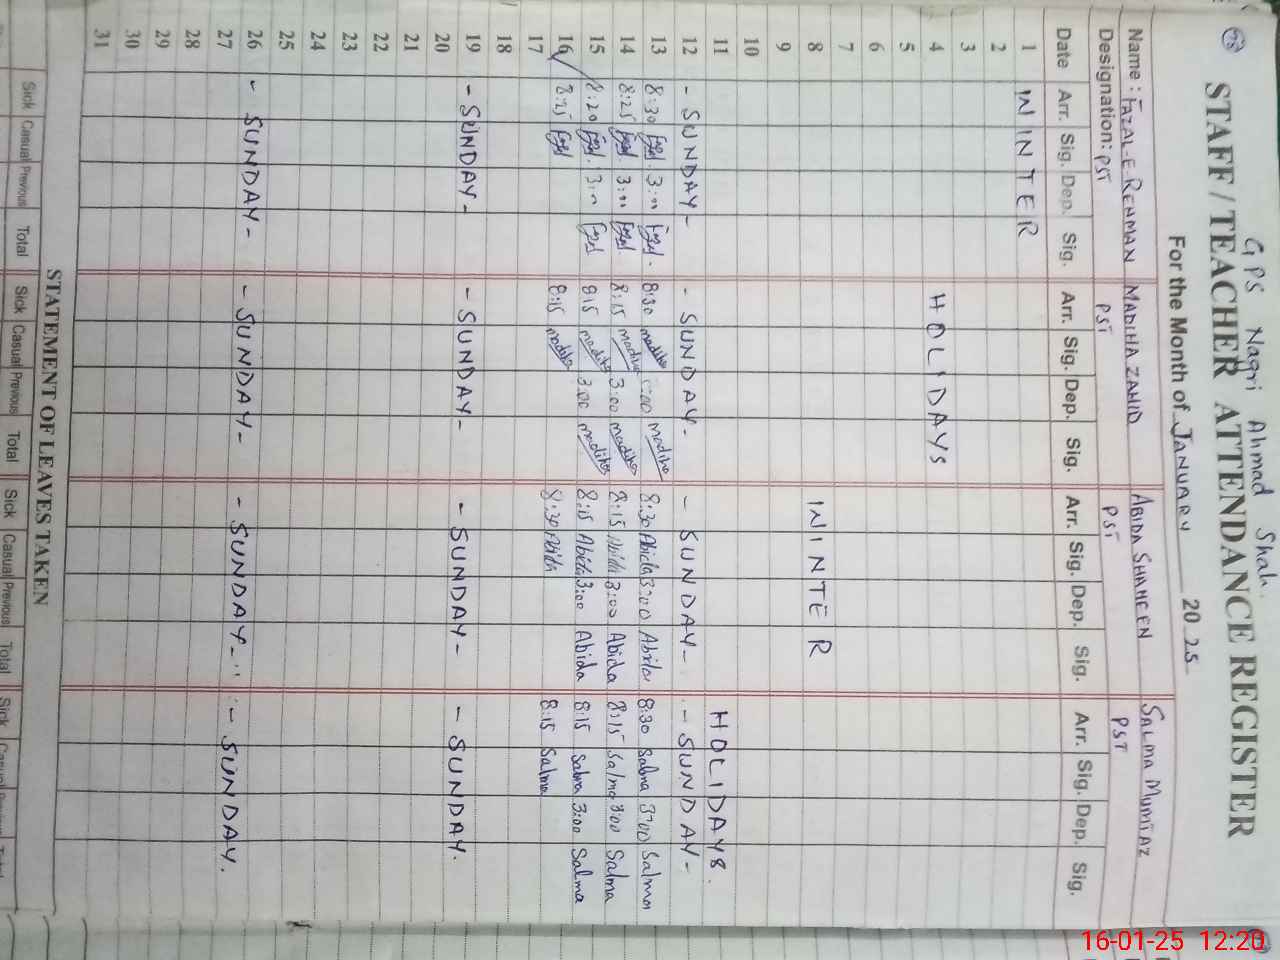 GPS Nagri Ahmad Shah.
STAFF / TEACHER ATTENDANCE REGISTER
For the Month of January 2025
Name: FAZAL-E-REHMAN MADIHA ZAHID ABIDA SHAHEEN SALMA MUMTAZ
Designation: PST PST PST PST
Date Arr. Sig. Dep. Sig. Arr. Sig. Dep. Sig. Arr. Sig. Dep. Sig. Arr. Sig. Dep. Sig.
1 WINTER
2
3
4 HOLIDAYS
5
6
7
8 WINTER
9
10
11 HOLIDAYS.
12 - SUNDAY - - SUNDAY. - SUNDAY - - SUNDAY -
13 8:30 3:00 8:30 madiha :00 madiha 8:30 Abida 3:00 Abida 8:30 Salma 3:00 Salma
14 8:25 3:00 8:15 madiha 3:00 madiha 8:15 Abida 3:00 Abida 8:15 Salma 3:00 Salma
15 8:20 8:15 madiha 3:00 madiha 8:15 Abida 3:00 Abida 8:15 Salma 3:00 Salma
16 8:25 8:15 madiha 8:30 Abida 8:15 Salma
17
18
19 - SUNDAY - - SUNDAY - - SUNDAY - - SUNDAY.
20
21
22
23
24
25
26 - SUNDAY - - SUNDAY - - SUNDAY - - SUNDAY.
27
28
29
30
31
STATEMENT OF LEAVES TAKEN
Sick Casual Previous Total Sick Casual Previous Total Sick Casual Previous Total Sick Casual
16-01-25 12:20